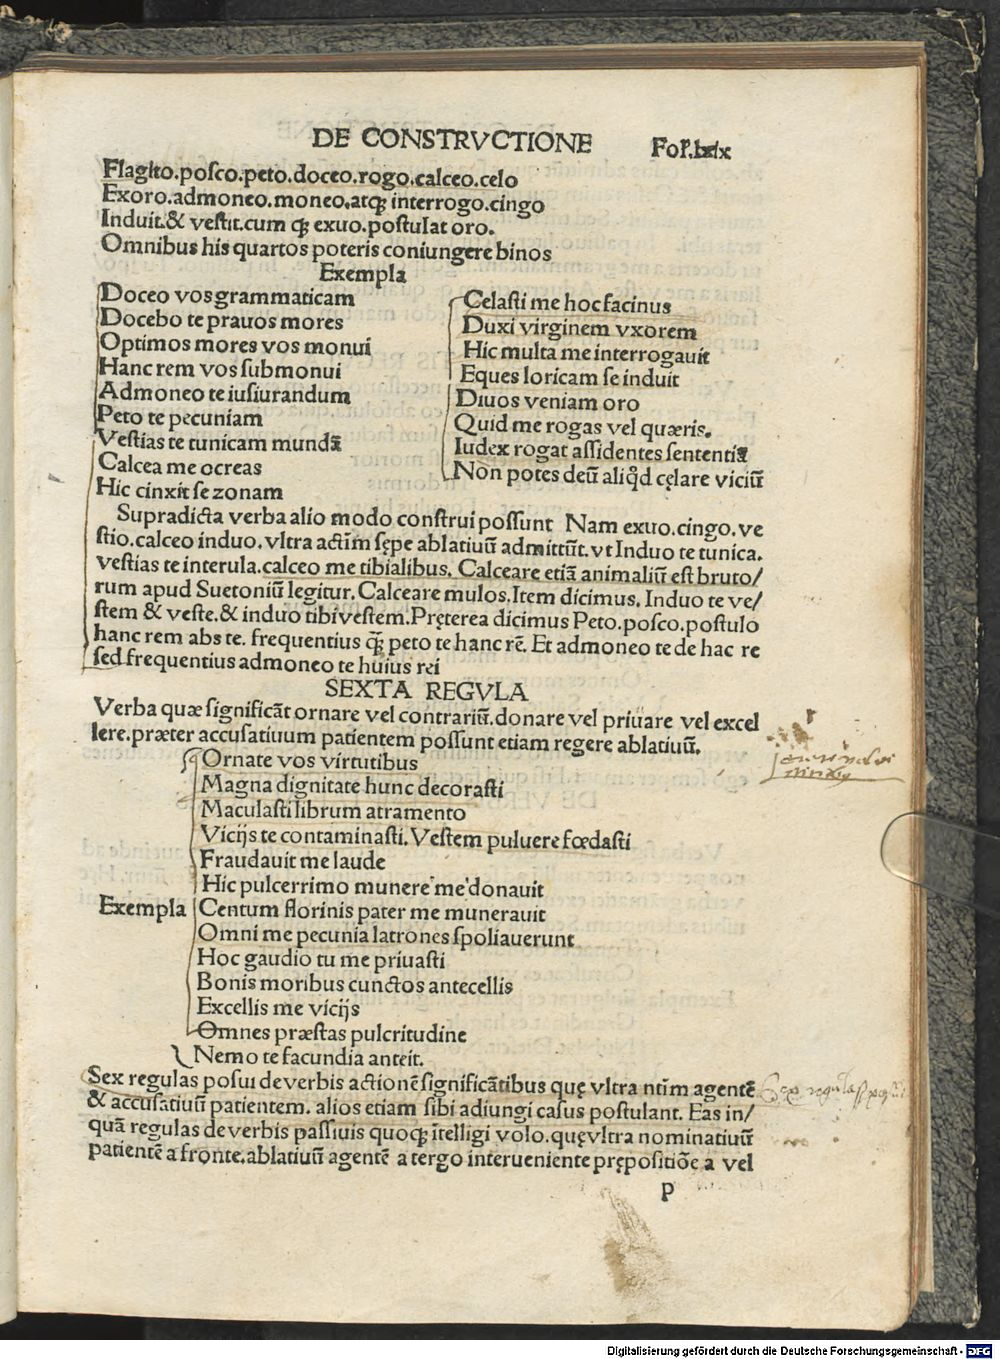 DE CONSTRVCTIONE
Flagito.posco.peto.doceo.rogo.calceo.celo
Exoro.admoneo.moneo.atq; interrogo.cingo
Induit.& vestit.cum q; exuo.postulat oro.
Omnibus his quartos poteris coniungere binos
Exempla
Doceo vos grammaticam
Docebo te prauos mores
Optimos mores vos monui
Hanc rem vos submonui
Admoneo te iusiurandum
Peto te pecuniam
Vestias te tunicam mundā
Calcea me ocreas
Hic cinxit se zonam
Celasti me hoc facinus
Duxi virginem vxorem
Hic multa me interrogauit
Eques loricam se induit
Diuos veniam oro
Quid me rogas vel quæris.
Iudex rogat assidentes sententiā
Non potes deū aliqd cęlare viciū
Supradicta verba alio modo construi possunt Nam exuo.cingo.ve
stio.calceo induo.vltra actīm sępe ablatiuū admittūt.vt Induo te tunica.
vestias te interula.calceo me tibialibus. Calceare etiā animaliū est bruto/
rum apud Suetoniū legitur. Calceare mulos.Item dicimus. Induo te ve/
stem & veste.& induo tibi vestem.Pręterea dicimus Peto.posco.postulo
hanc rem abs te. frequentius q̄; peto te hanc rē. Et admoneo te de hac re
sed frequentius admoneo te huius rei
SEXTA REGVLA
Verba quæ significāt ornare vel contrariū.donare vel priuare vel excel
lere.præter accusatiuum patientem possunt etiam regere ablatiuū.
Ornate vos virtutibus
Magna dignitate hunc decorasti
Maculasti librum atramento
Vicijs te contaminasti. Vestem puluere fœdasti
Fraudauit me laude
Hic pulcerrimo munere me donauit
Exempla Centum florinis pater me munerauit
Omni me pecunia latrones spoliauerunt
Hoc gaudio tu me priuasti
Bonis moribus cunctos antecellis
Excellis me vicijs
Omnes præstas pulcritudine
Nemo te facundia anteit.
Sex regulas posui de verbis actionē significātibus quę vltra ntīm agentē
& accusatiuū patientem. alios etiam sibi adiungi casus postulant. Eas in/
quā regulas de verbis passiuis quoq; ītelligi volo.quę vltra nominatiuū
patientē a fronte.ablatiuū agentē a tergo interueniente prępositiōe a vel
P
Digitalisierung gefördert durch die Deutsche Forschungsgemeinschaft - DFG